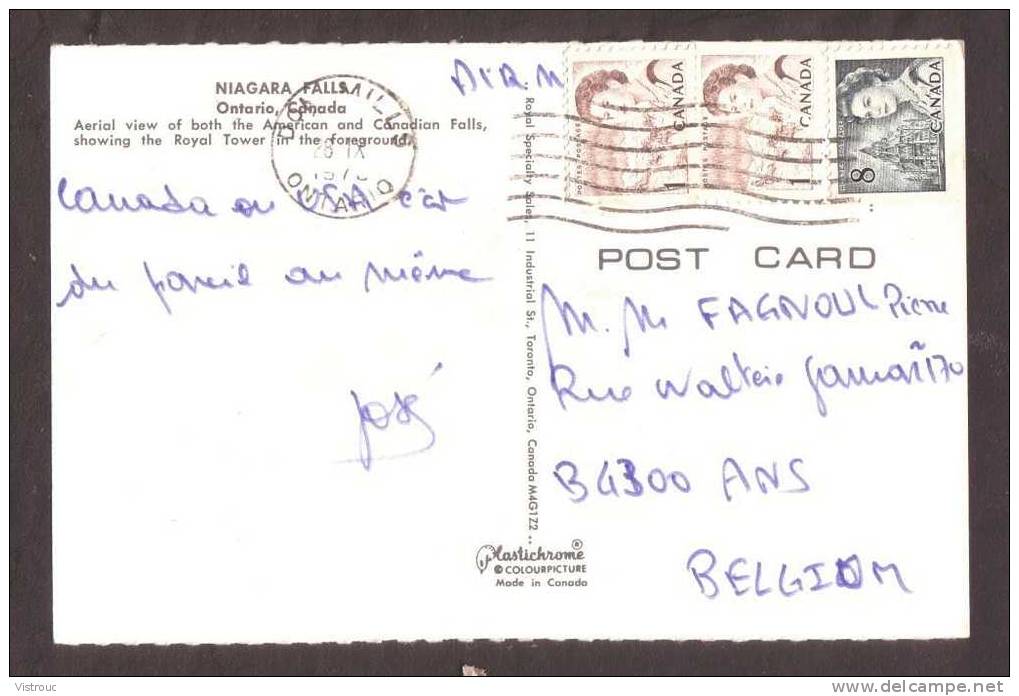 NIAGARA FALLS
Ontario, Canada
Aerial view of both the American and Canadian Falls,
showing the Royal Tower in the foreground.
DON MILLS
28 IX
ONTARIO
AIR M
Canada ou USA c'est
du pareil au même
José
Royal Specialty Sales, 11 Industrial St., Toronto, Ontario, Canada M4G1Z2
Plastichrome ®
© COLOURPICTURE
Made in Canada
CANADA
POSTES POSTAGE
1
CANADA
POSTES POSTAGE
1
CANADA
8
POST CARD
M. M FAGNOUL Pierre
Rue Walter 170
B4300 ANS
BELGIUM
Vistrouc
www.delcampe.net